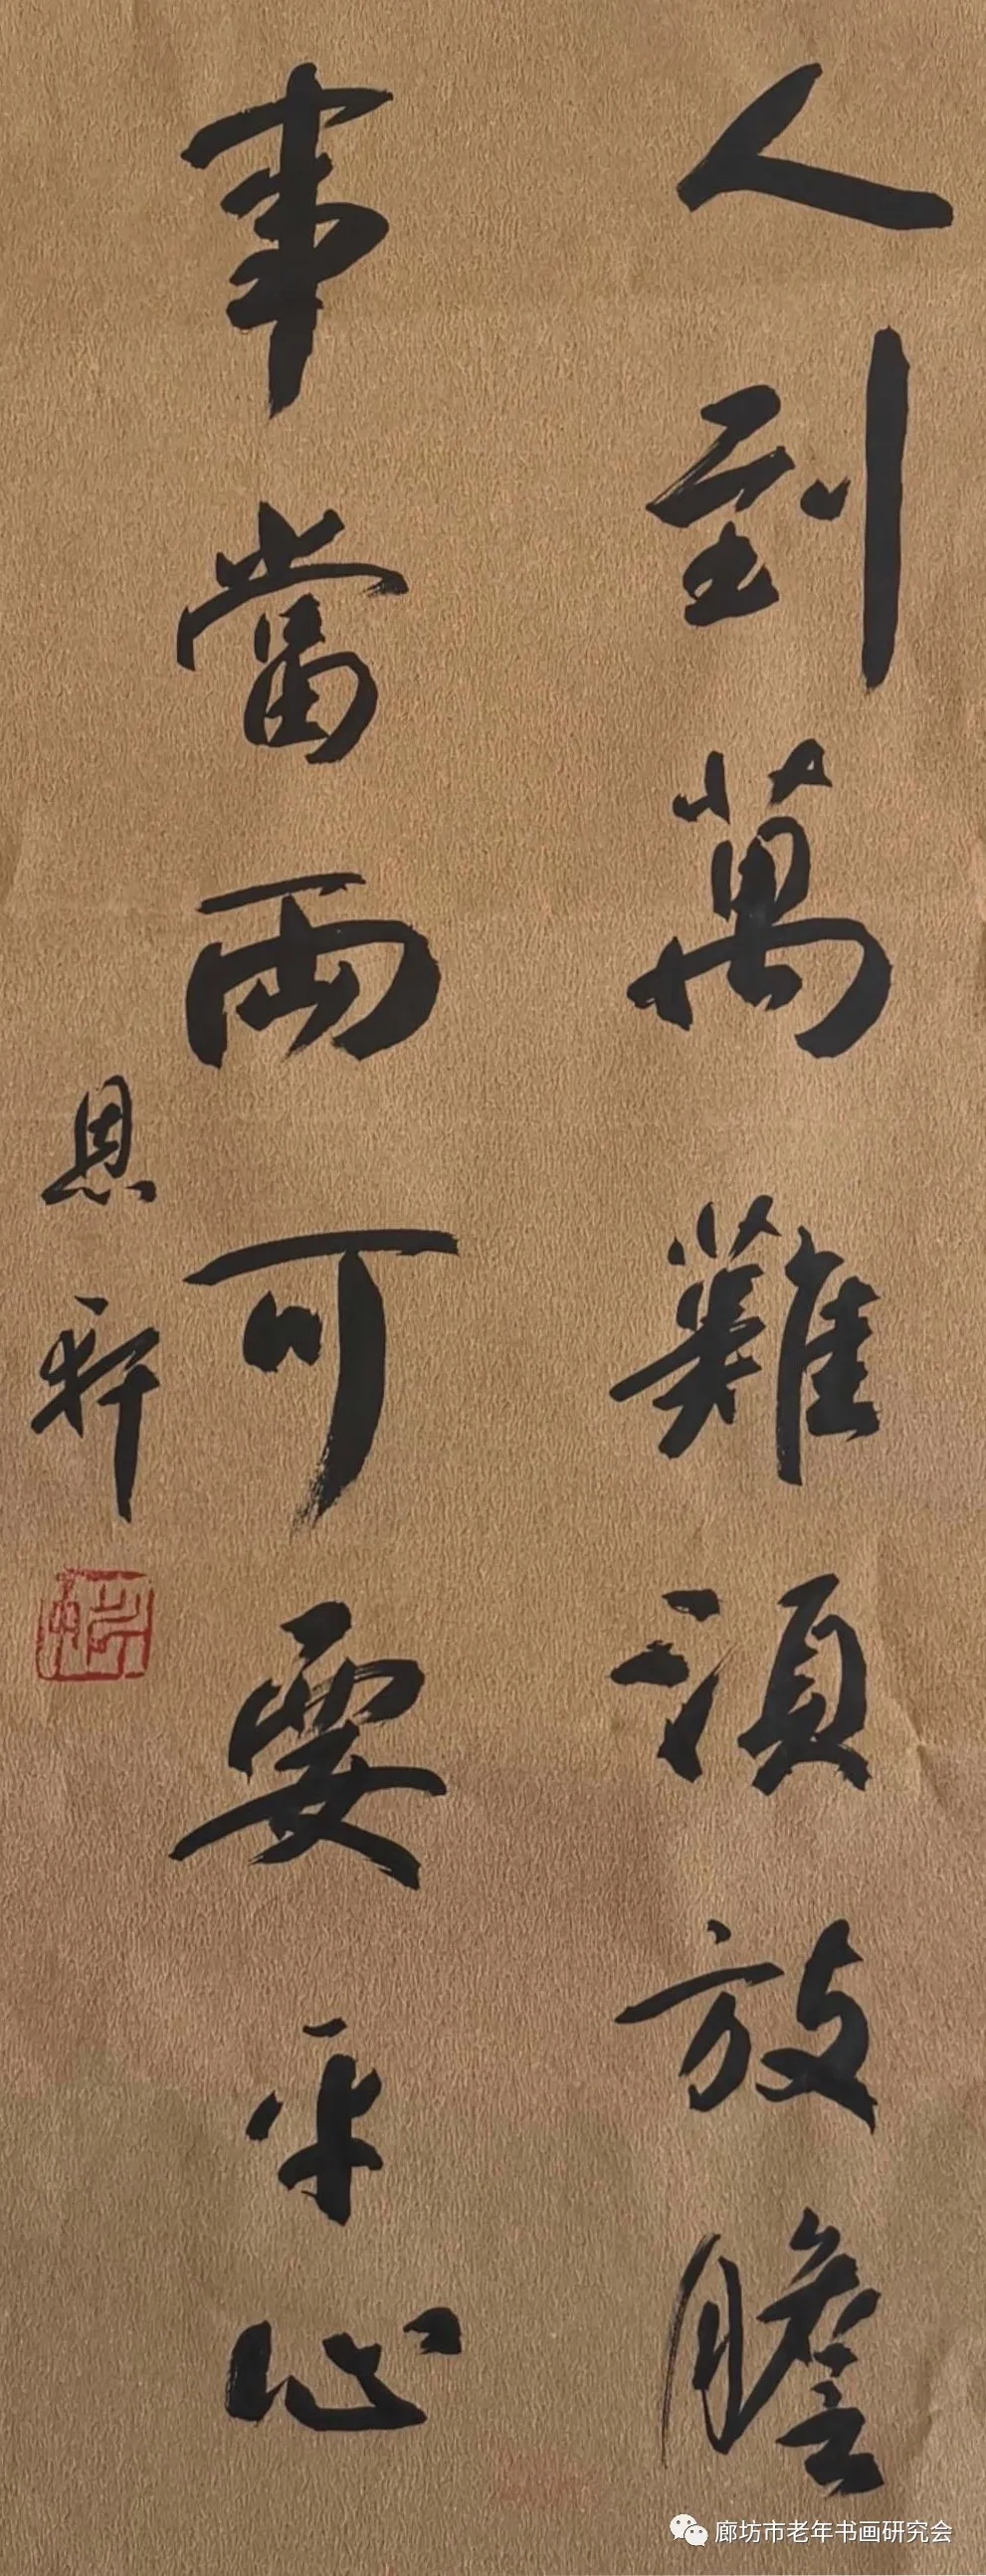 人到萬難須放膽
事當兩可要平心
恩軒
廊坊市老年书画研究会